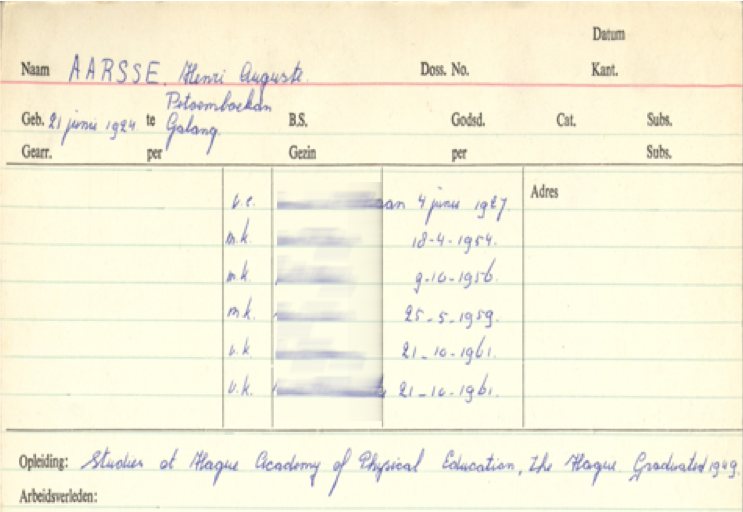 Datum
Naam AARSSE, Henri Auguste. Doss. No. Kant.
Petoemboekan
Geb. 21 junie 1924 te Galang B.S. Godsd. Cat. Subs.
Gearr. per Gezin per Subs.
v.e. an 4 junie 1927. Adres
m.k. 18-4-1954.
m.k. 9-10-1956.
m.k. 25-5-1959.
v.k. 21-10-1961.
v.k. 21-10-1961.
Opleiding: Studies at Hague Academy of Physical Education, the Hague. Graduated 1949.
Arbeidsverleden: